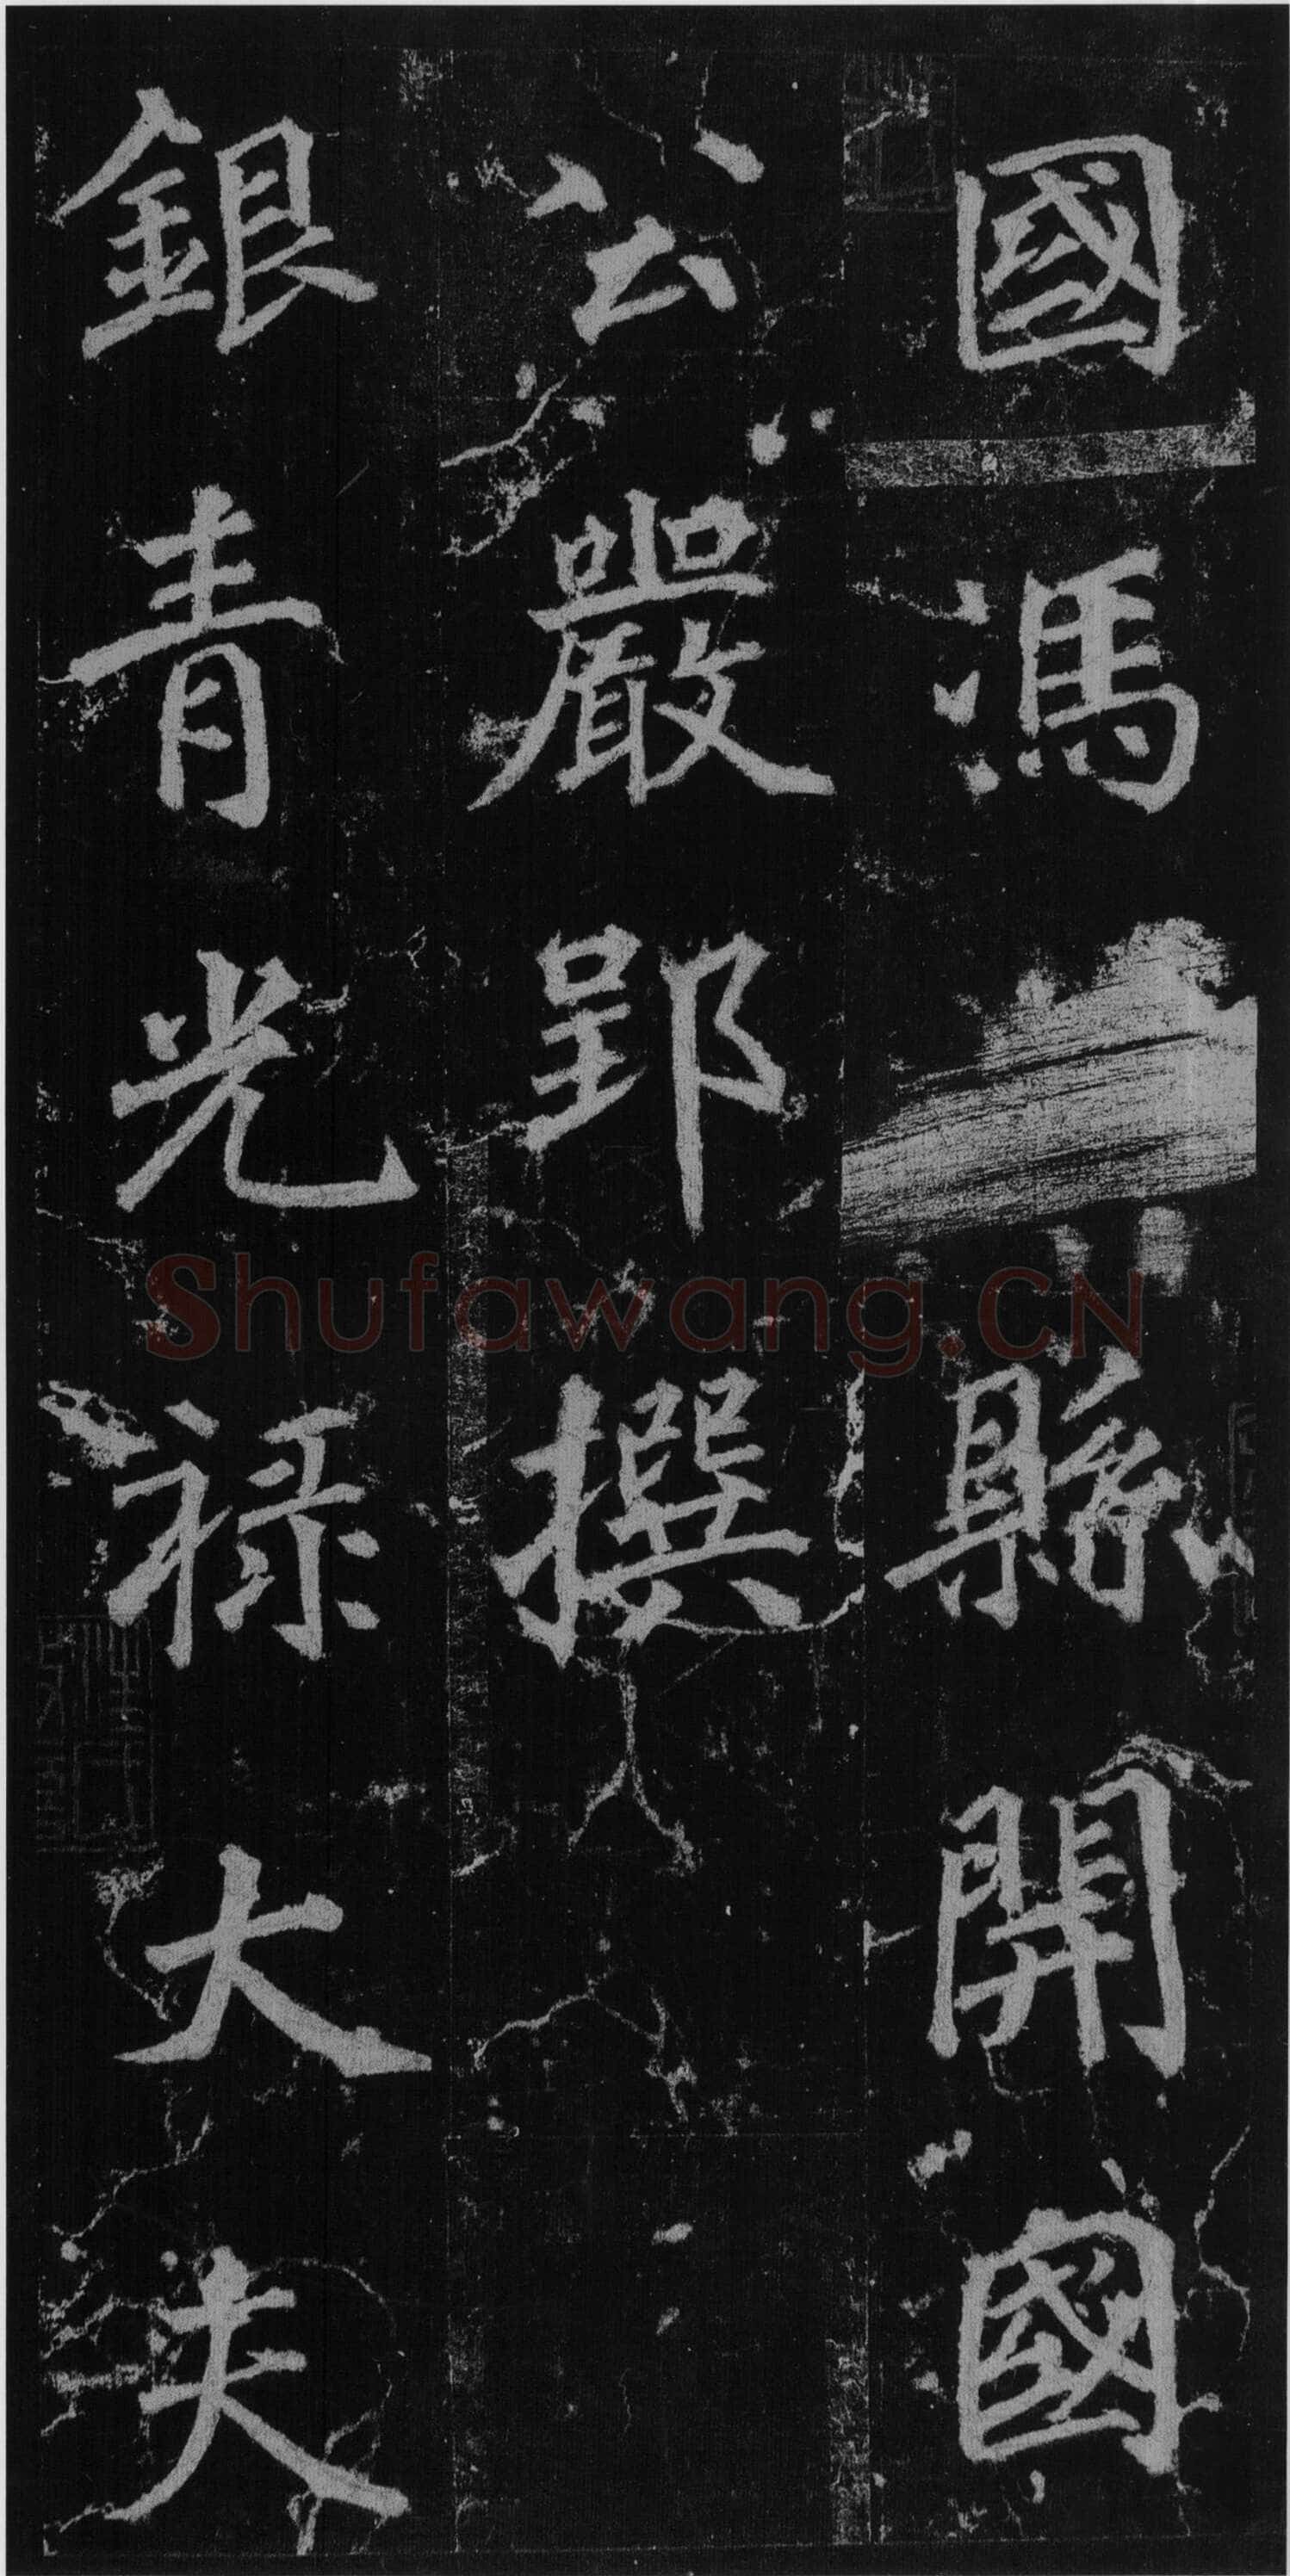 國馮縣開國
公嚴郢撰
銀青光禄大夫
Shufawang.CN